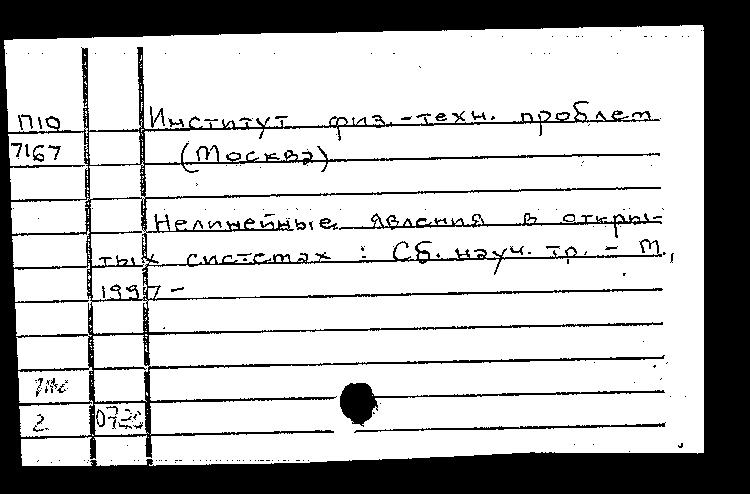 П10
7167
Институт физ.-техн. проблем
(Москва)
Нелинейные явления в откры-
тых системах : Сб. науч. тр. - М.,
1997-
2